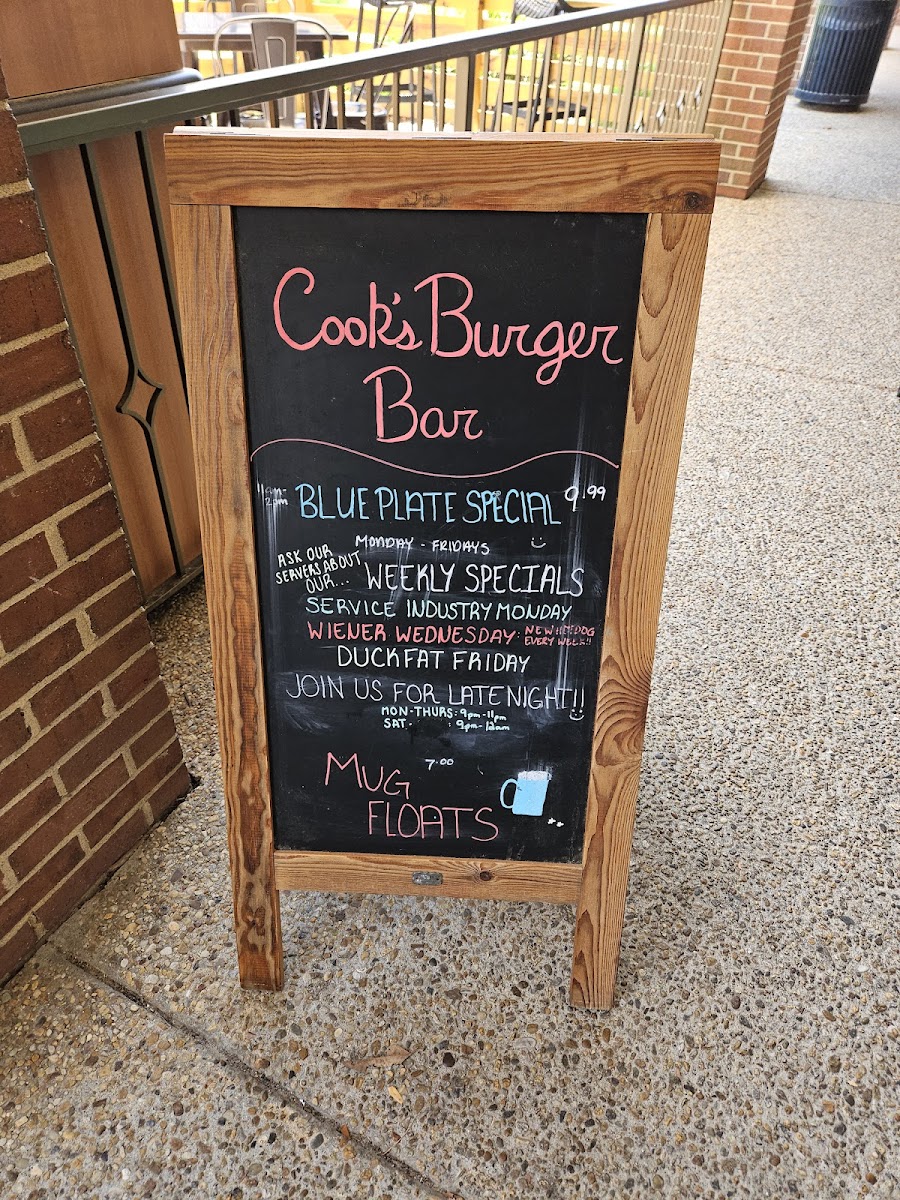 Cook's Burger
Bar
2pm BLUE PLATE SPECIAL 9.99
MONDAY - FRIDAYS
ASK OUR
SERVERS ABOUT
OUR...
WEEKLY SPECIALS
SERVICE INDUSTRY MONDAY
WIENER WEDNESDAY: NEW HOTDOG
EVERY WEEK!!
DUCKFAT FRIDAY
JOIN US FOR LATE NIGHT!!
MON-THURS: 9pm-11pm
SAT. : 9pm-12am
7.00
MUG
FLOATS